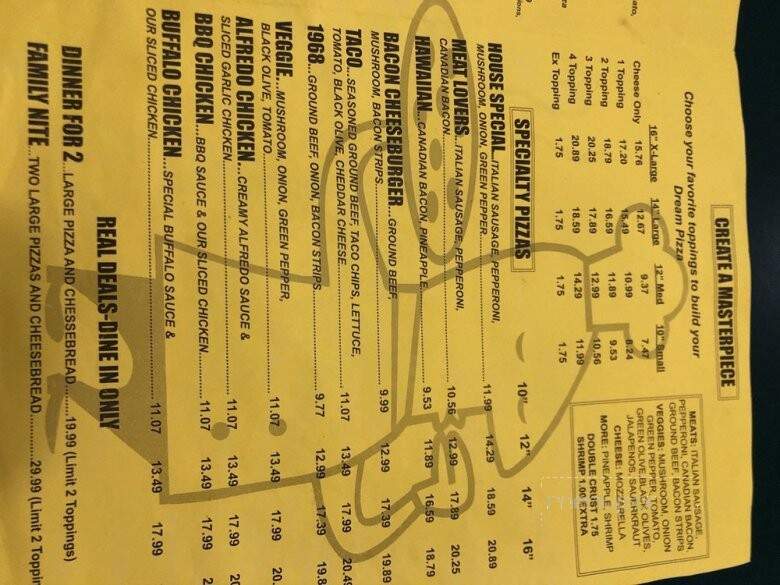 CREATE A MASTERPIECE
Choose your favorite toppings to build your
Dream Pizza
16" X-Large 14" Large 12" Med 10" Small
Cheese Only 15.76 12.67 9.37 7.47
1 Topping 17.20 15.49 10.99 8.24
2 Topping 18.79 16.59 11.89 9.53
3 Topping 20.25 17.89 12.99 10.56
4 Topping 20.89 18.59 14.29 11.99
Ex Topping 1.75 1.75 1.75 1.75
MEATS: ITALIAN SAUSAGE,
PEPPERONI, CANADIAN BACON,
GROUND BEEF, BACON STRIPS
VEGGIES: MUSHROOM, ONION
GREEN PEPPER, TOMATO,
GREEN OLIVE, BLACK OLIVES,
JALAPENOS, SAUERKRAUT
CHEESE: MOZZARELLA
MORE: PINEAPPLE, SHRIMP
DOUBLE CRUST 1.75
SHRIMP 1.00 EXTRA
SPECIALTY PIZZAS 10" 12" 14" 16"
HOUSE SPECIAL...ITALIAN SAUSAGE, PEPPERONI,
MUSHROOM, ONION, GREEN PEPPER 11.99 14.29 18.59 20.89
MEAT LOVERS...ITALIAN SAUSAGE, PEPPERONI,
CANADIAN BACON 10.56 12.99 17.89 20.25
HAWAIIAN...CANADIAN BACON, PINEAPPLE 9.53 11.89 16.59 18.79
BACON CHEESEBURGER...GROUND BEEF,
MUSHROOM, BACON STRIPS 9.99 12.99 17.39 19.89
TACO...SEASONED GROUND BEEF, TACO CHIPS, LETTUCE,
TOMATO, BLACK OLIVE, CHEDDAR CHEESE 11.07 13.49 17.99 20.49
1968...GROUND BEEF, ONION, BACON STRIPS 9.77 12.99 17.39 19.8
VEGGIE...MUSHROOM, ONION, GREEN PEPPER,
BLACK OLIVE, TOMATO 11.07 13.49 17.99 20.
ALFREDO CHICKEN...CREAMY ALFREDO SAUCE &
SLICED GARLIC CHICKEN 11.07 13.49 17.99 20
BBQ CHICKEN...BBQ SAUCE & OUR SLICED CHICKEN 11.07 13.49 17.99 2
BUFFALO CHICKEN...SPECIAL BUFFALO SAUCE &
OUR SLICED CHICKEN 11.07 13.49 17.99
REAL DEALS-DINE IN ONLY
DINNER FOR 2...LARGE PIZZA AND CHESSEBREAD 19.99 (Limit 2 Toppings)
FAMILY NITE...TWO LARGE PIZZAS AND CHEESEBREAD 29.99 (Limit 2 Toppin